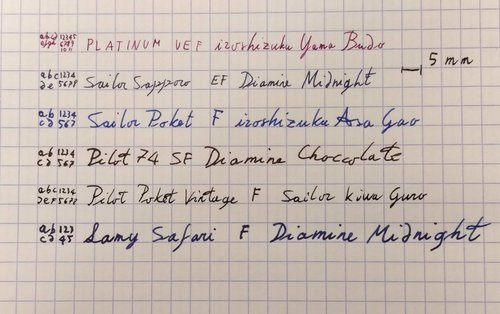 abcd 12345 PLATINUM UEF iroshizuku Yama Budo
efgh 6789
10 11
abc 1234 Sailor Sapporo EF Diamine Midnight
de 5678
5 mm
ab 1234 Sailor Poket F iroshizuku Asa Gao
cd 567
ab 1234 Pilot 74 SF Diamine Choccolate
cd 567
abc 1234 Pilot Poket Vintage F Sailor Kiwa Guro
def 5678
ab 123 Lamy Safari F Diamine Midnight
cd 45